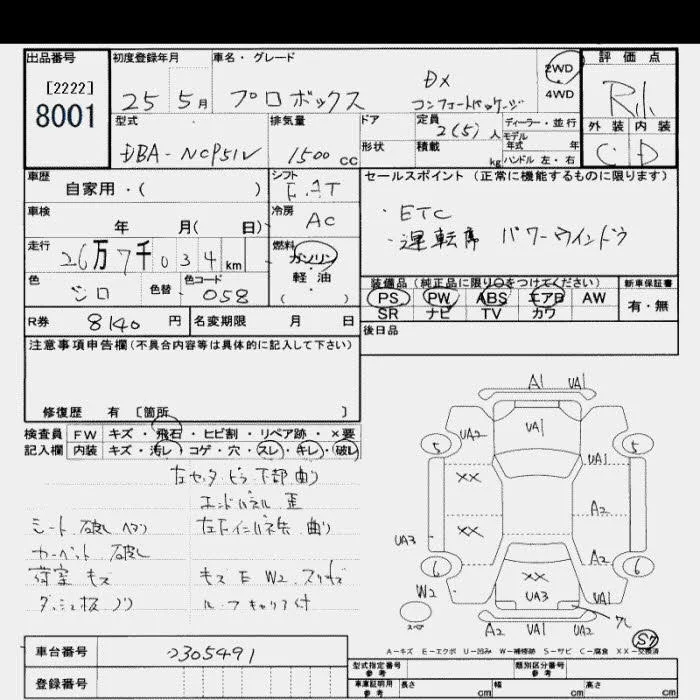 出品番号
[2222]
8001
初度登録年月
25 5月
車名・グレード
プロボックス
DX
コンフォートパッケージ
2WD
4WD
評価点
R1.
外装 内装
C D
型式
DBA-NCP51V
排気量
1500 cc
ドア
形状
定員
2(5)人
積載
kg
ディーラー・並行
モデル
年式 年
ハンドル 左・右
車歴
自家用・( )
シフト
F.AT
車検
年 月( 日)
冷房
AC
走行
26万7千034km
燃料
ガソリン
軽・油
( )
色
シロ
色替
色コード
058
R券
8140円
名変期限 月 日
セールスポイント(正常に機能するものに限ります)
・ETC
・運転席 パワーウインドウ
装備品(純正品に限り○をつけてください)
PS PW ABS エアB AW
SR ナビ TV カワ
新車保証書
有・無
後日品
注意事項申告欄(不具合内容等は具体的に記入して下さい)
修復歴 有 [箇所 ]
検査員
記入欄
FW キズ・飛石・ヒビ割・リペア跡・×要
内装 キズ・汚レ・コゲ・穴・スレ・キレ・破レ
左センターピラー下部 曲り
エンドパネル 歪
シート 破レ ヘタリ
左F インパネ先 曲り
カーペット 破レ
荷室 キズ
キズ E W2 スリキズ
ルーフキャリア付
A1 UA1
UA2
UA1
5
5
UA1
XX
A2
XX
UA3
A2
6
6
XX
UA3
W2
スペア
A2 UA1 UA2
UA1
S7
A-キズ E-エクボ U-凹み W-補修跡 S-サビ C-腐食 XX-交換済
車台番号
2305491
登録番号
型式指定番号
参考
類別区分番号
参考
車庫証明用
参考
長さ cm
幅 cm
高さ cm